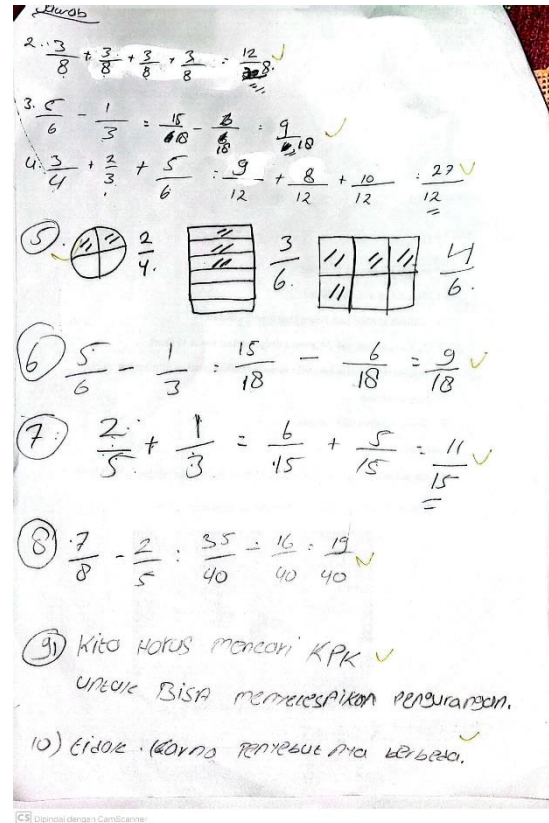 Jawab
2. 3/8 + 3/8 + 3/8 + 3/8 = 12/8
3. 5/6 - 1/3 = 15/18 - 6/18 = 9/18
4. 3/4 + 2/3 + 5/6 = 9/12 + 8/12 + 10/12 = 27/12
5. 2/4. 3/6. 4/6.
6 5/6 - 1/3 = 15/18 - 6/18 = 9/18
7 2/5 + 1/3 = 6/15 + 5/15 = 11/15
8 7/8 - 2/5 = 35/40 - 16/40 = 19/40
9) Kita Harus mencari KPK
untuk BISA menyelesaikan pengurangan.
10) tidak. Karna penyebutnya berbeda.
CS Dipindai dengan CamScanner